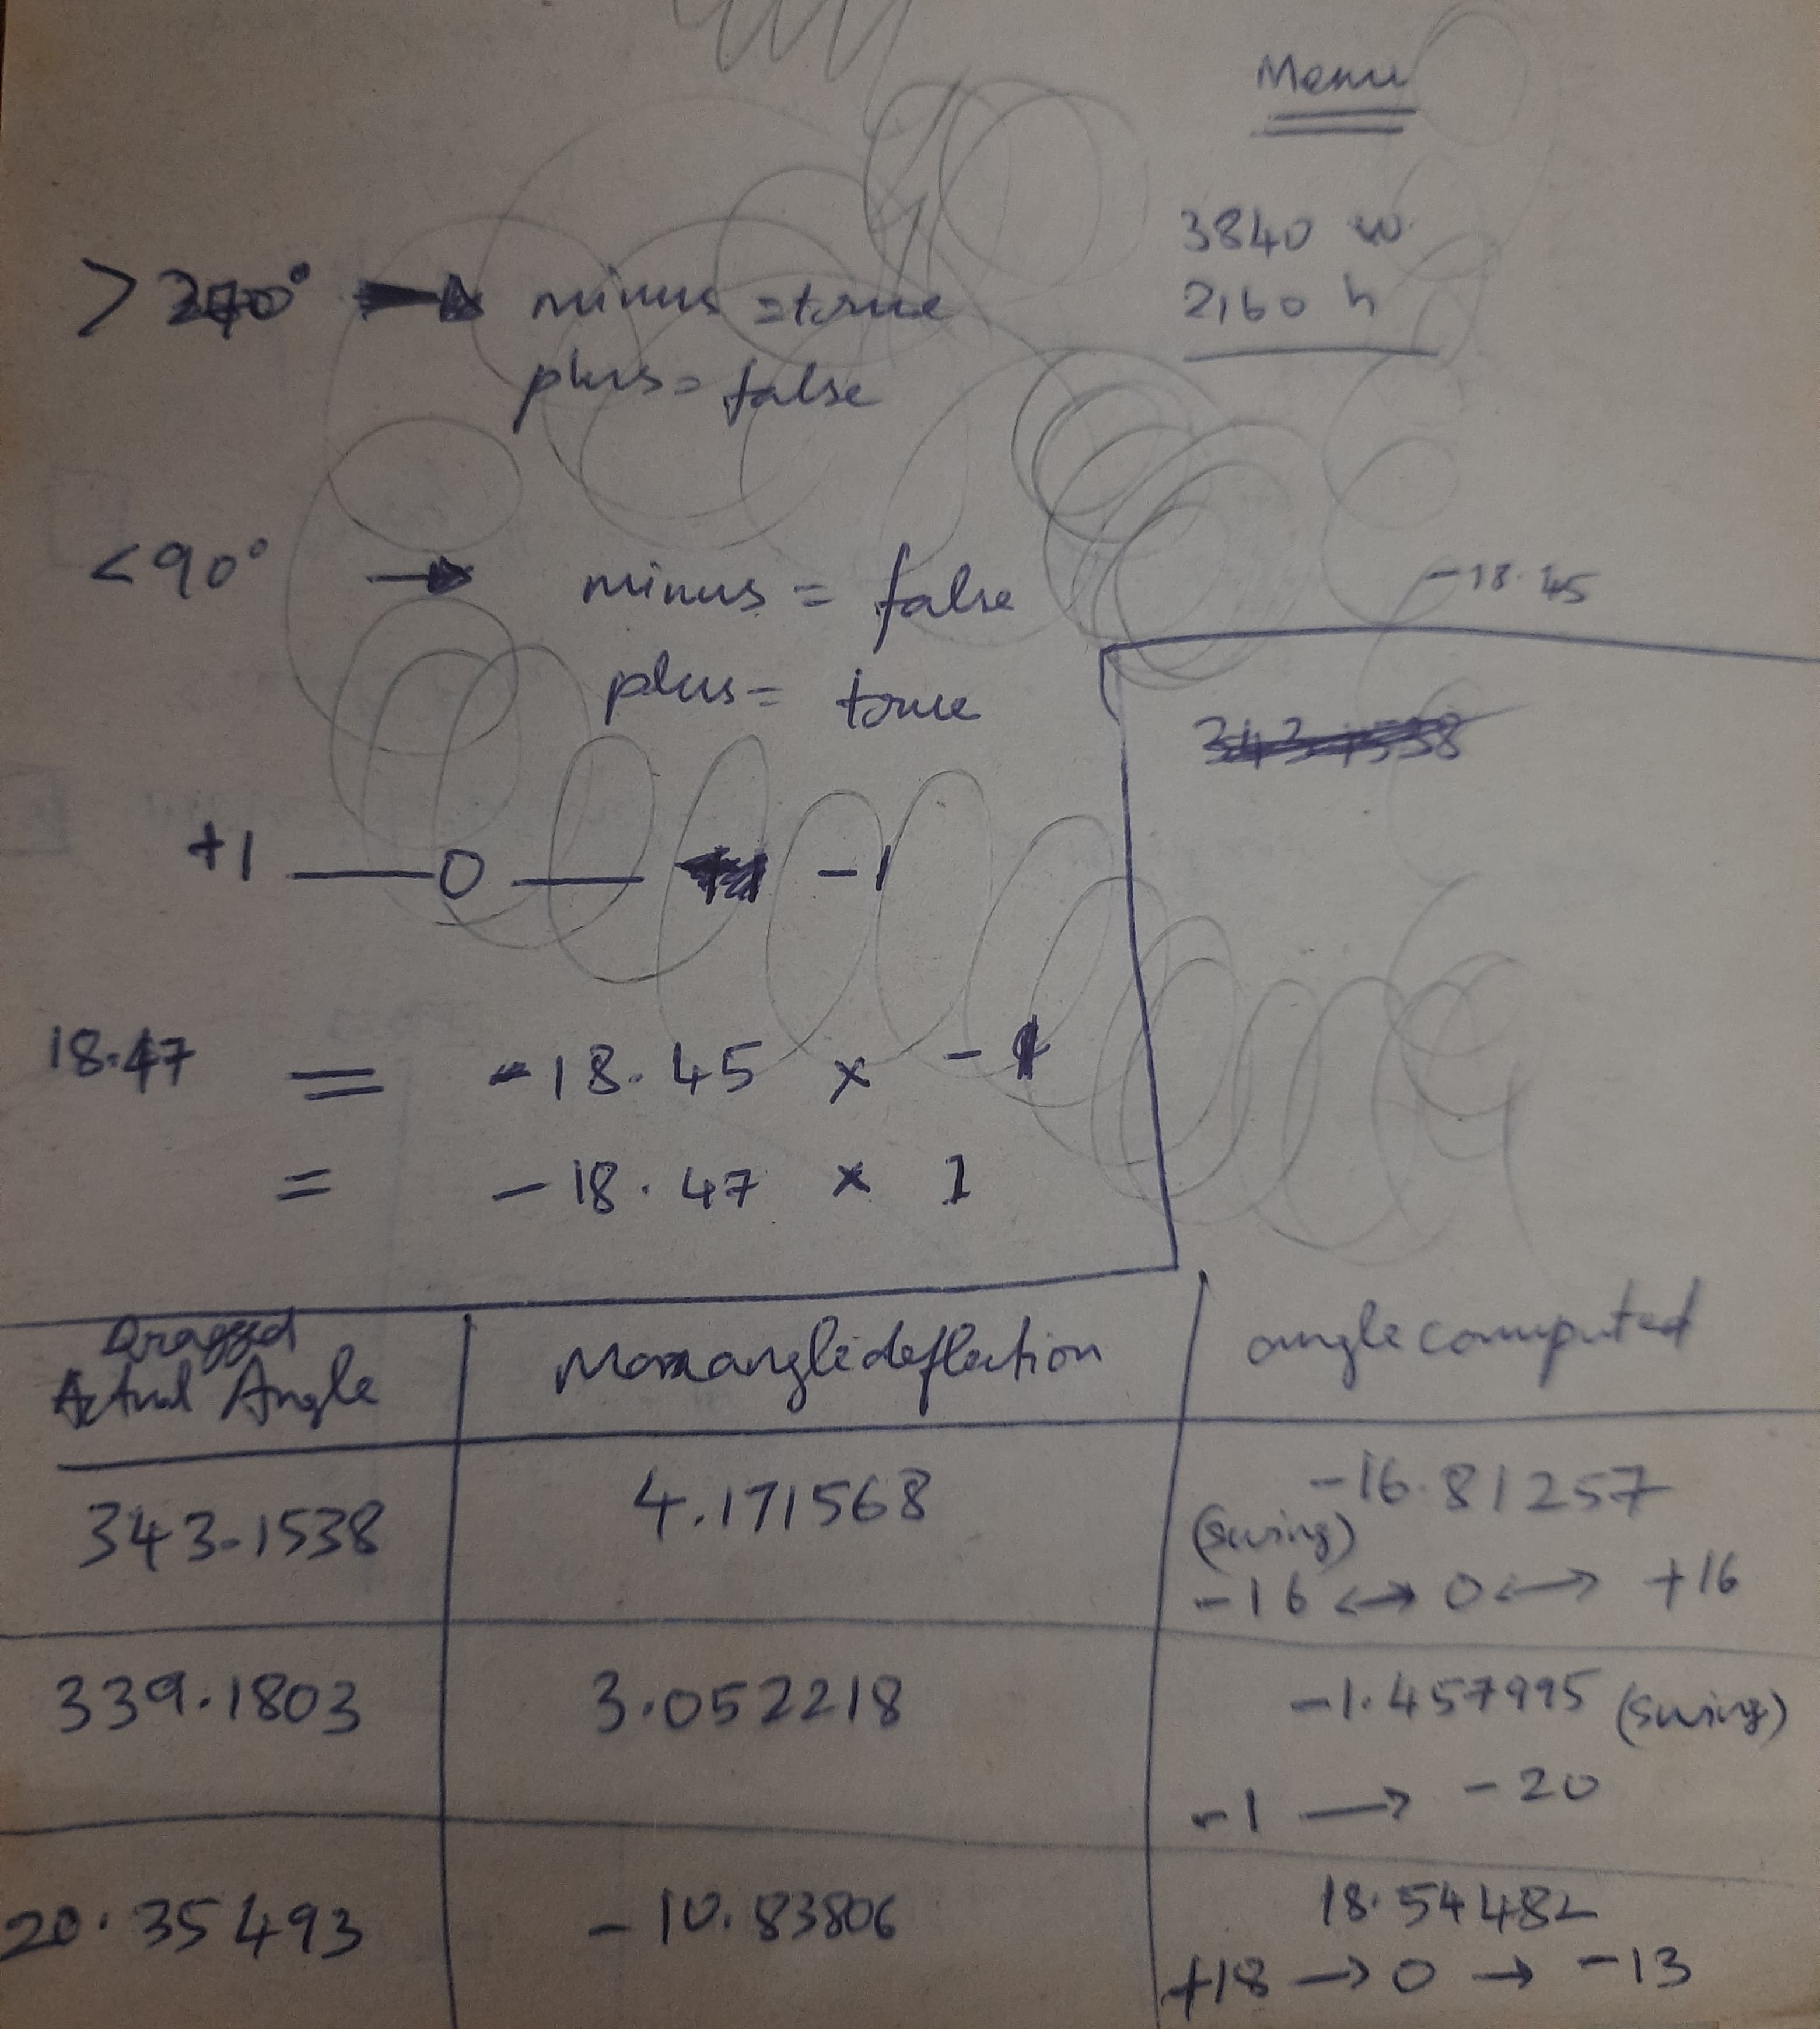 Menu
3840 w
2160 h
>270° → minus = true
plus = false
<90° → minus = false
plus = true
-18.45
+1 — 0 — -1
18.47 = -18.45 × -1
= -18.47 × 1
Dragged
Actual Angle
Maxangledeflection
anglecomputed
343.1538
4.171568
-16.81257
(swing)
-16 ↔ 0 ↔ +16
339.1803
3.052218
-1.457995 (swing)
-1 → -20
20.35493
-10.83806
18.54482
+18 → 0 → -13